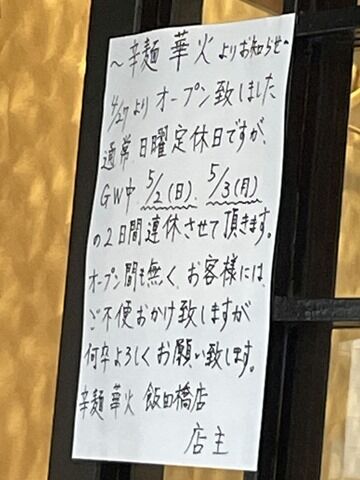 ～辛麺 華火 よりお知らせ～
4/27よりオープン致しました
通常 日曜定休日ですが、
GW中 5/2(日)、5/3(月)
の2日間連休させて頂きます。
オープン間も無く、お客様には、
ご不便おかけ致しますが
何卒よろしくお願い致します。
辛麺 華火 飯田橋店
店主